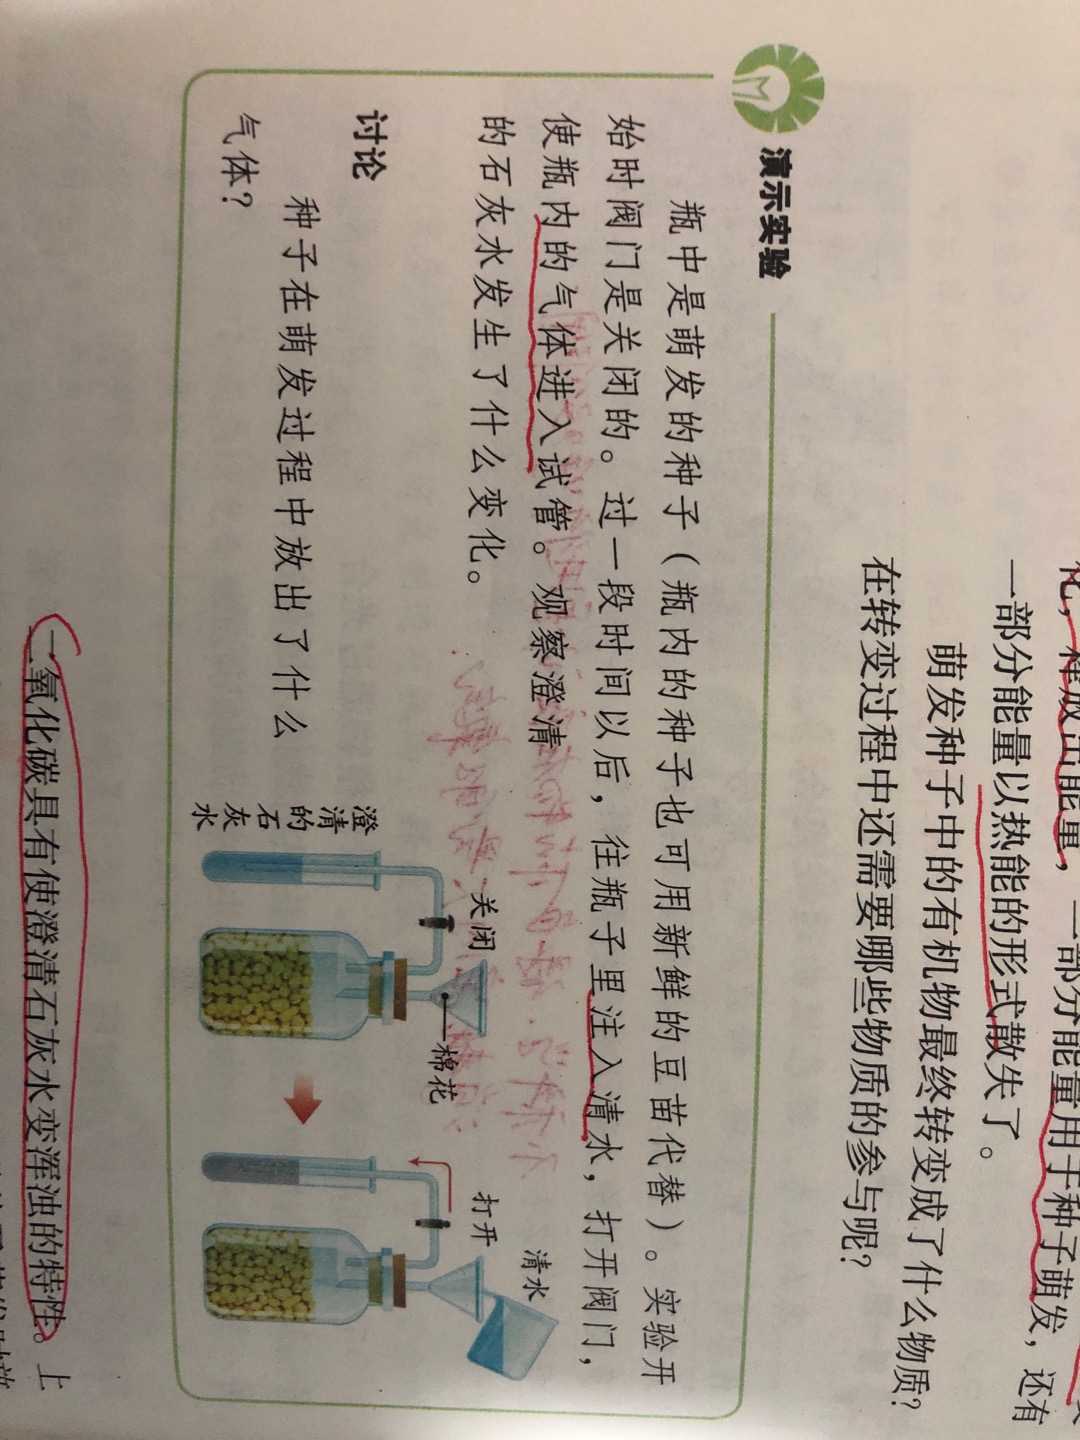 化，释放出能量，一部分能量用于种子萌发，还有
一部分能量以热能的形式散失了。
萌发种子中的有机物最终转变成了什么物质？
在转变过程中还需要哪些物质的参与呢？
演示实验
瓶中是萌发的种子（瓶内的种子也可用新鲜的豆苗代替）。实验开
始时阀门是关闭的。过一段时间以后，往瓶子里注入清水，打开阀门，
使瓶内的气体进入试管。观察澄清
的石灰水发生了什么变化。
讨论
种子在萌发过程中放出了什么
气体？
澄清
的石
灰水
关闭
棉花
打开
清水
二氧化碳具有使澄清石灰水变浑浊的特性。上